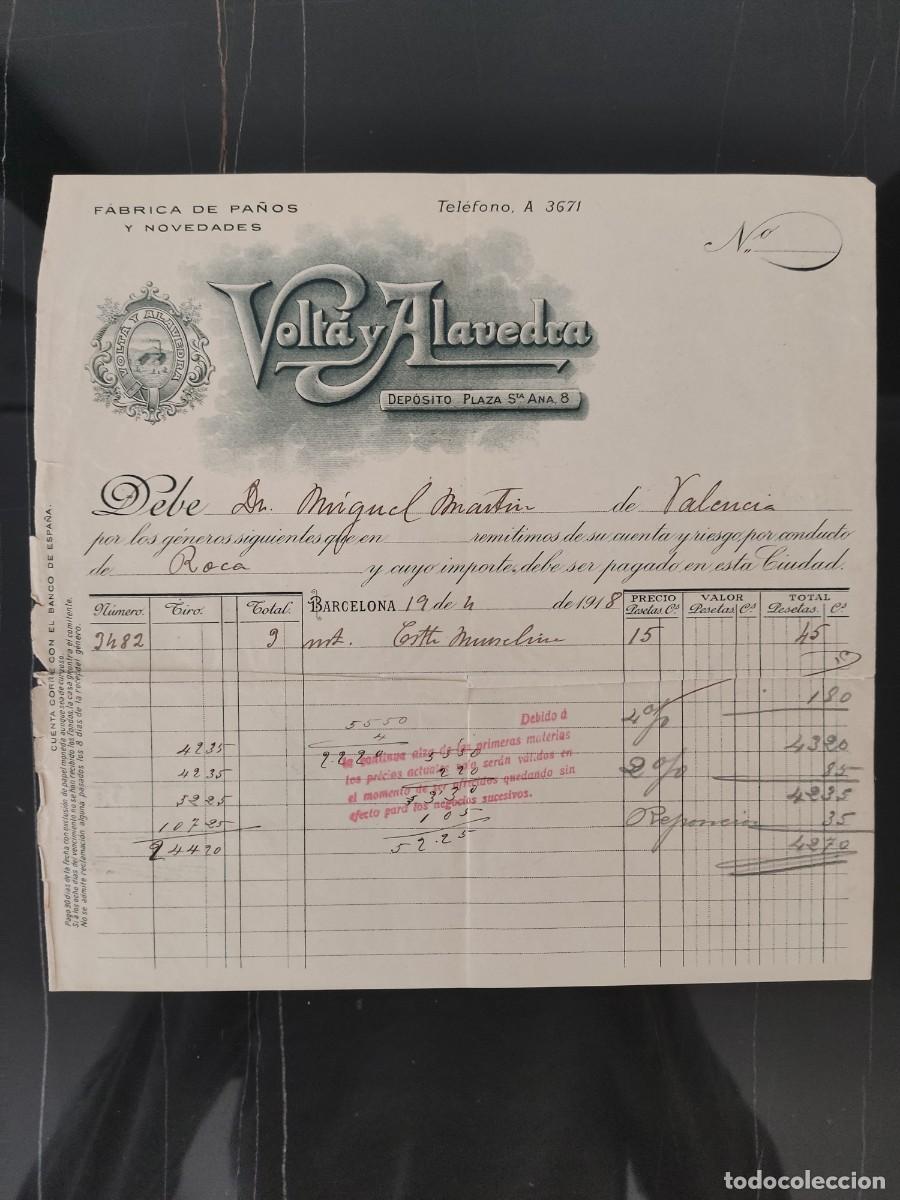 FÁBRICA DE PAÑOS
Y NOVEDADES
Teléfono, A 3671
Nº
VOLTÁ Y ALAVEDRA
Voltá y Alavedra
DEPÓSITO PLAZA STA ANA, 8
Debe Dn. Miguel Martin de Valencia
por los géneros siguientes que en remitimos de su cuenta y riesgo, por conducto
de Roca y cuyo importe, debe ser pagado en esta Ciudad.
Número. Tiro. Total. BARCELONA 19 de 4 de 1918 PRECIO Pesetas Cs. VALOR Pesetas Cs. TOTAL Pesetas. Cs.
3482 3 mt. Muselina 15 45
5550 4% 180
4
4235 2.220 5550 4320
4235 220 2% 85
5225 5330 4235
10725 105 Reposicion 35
24420 52.25 4270
Debido á
la continua alza de las primeras materias
los precios actuales solo serán válidos en
el momento de ser ofrecidos quedando sin
efecto para los negocios sucesivos.
CUENTA CORRIENTE CON EL BANCO DE ESPAÑA.
Pago 30 días de la fecha con exclusión de papel moneda aunque sea de curso
Si á los ocho días del vencimiento no se han recibido los fondos, la casa girará
No se admite reclamación alguna pasados los 8 días de la recep. del género.
todocoleccion
todocoleccion.net